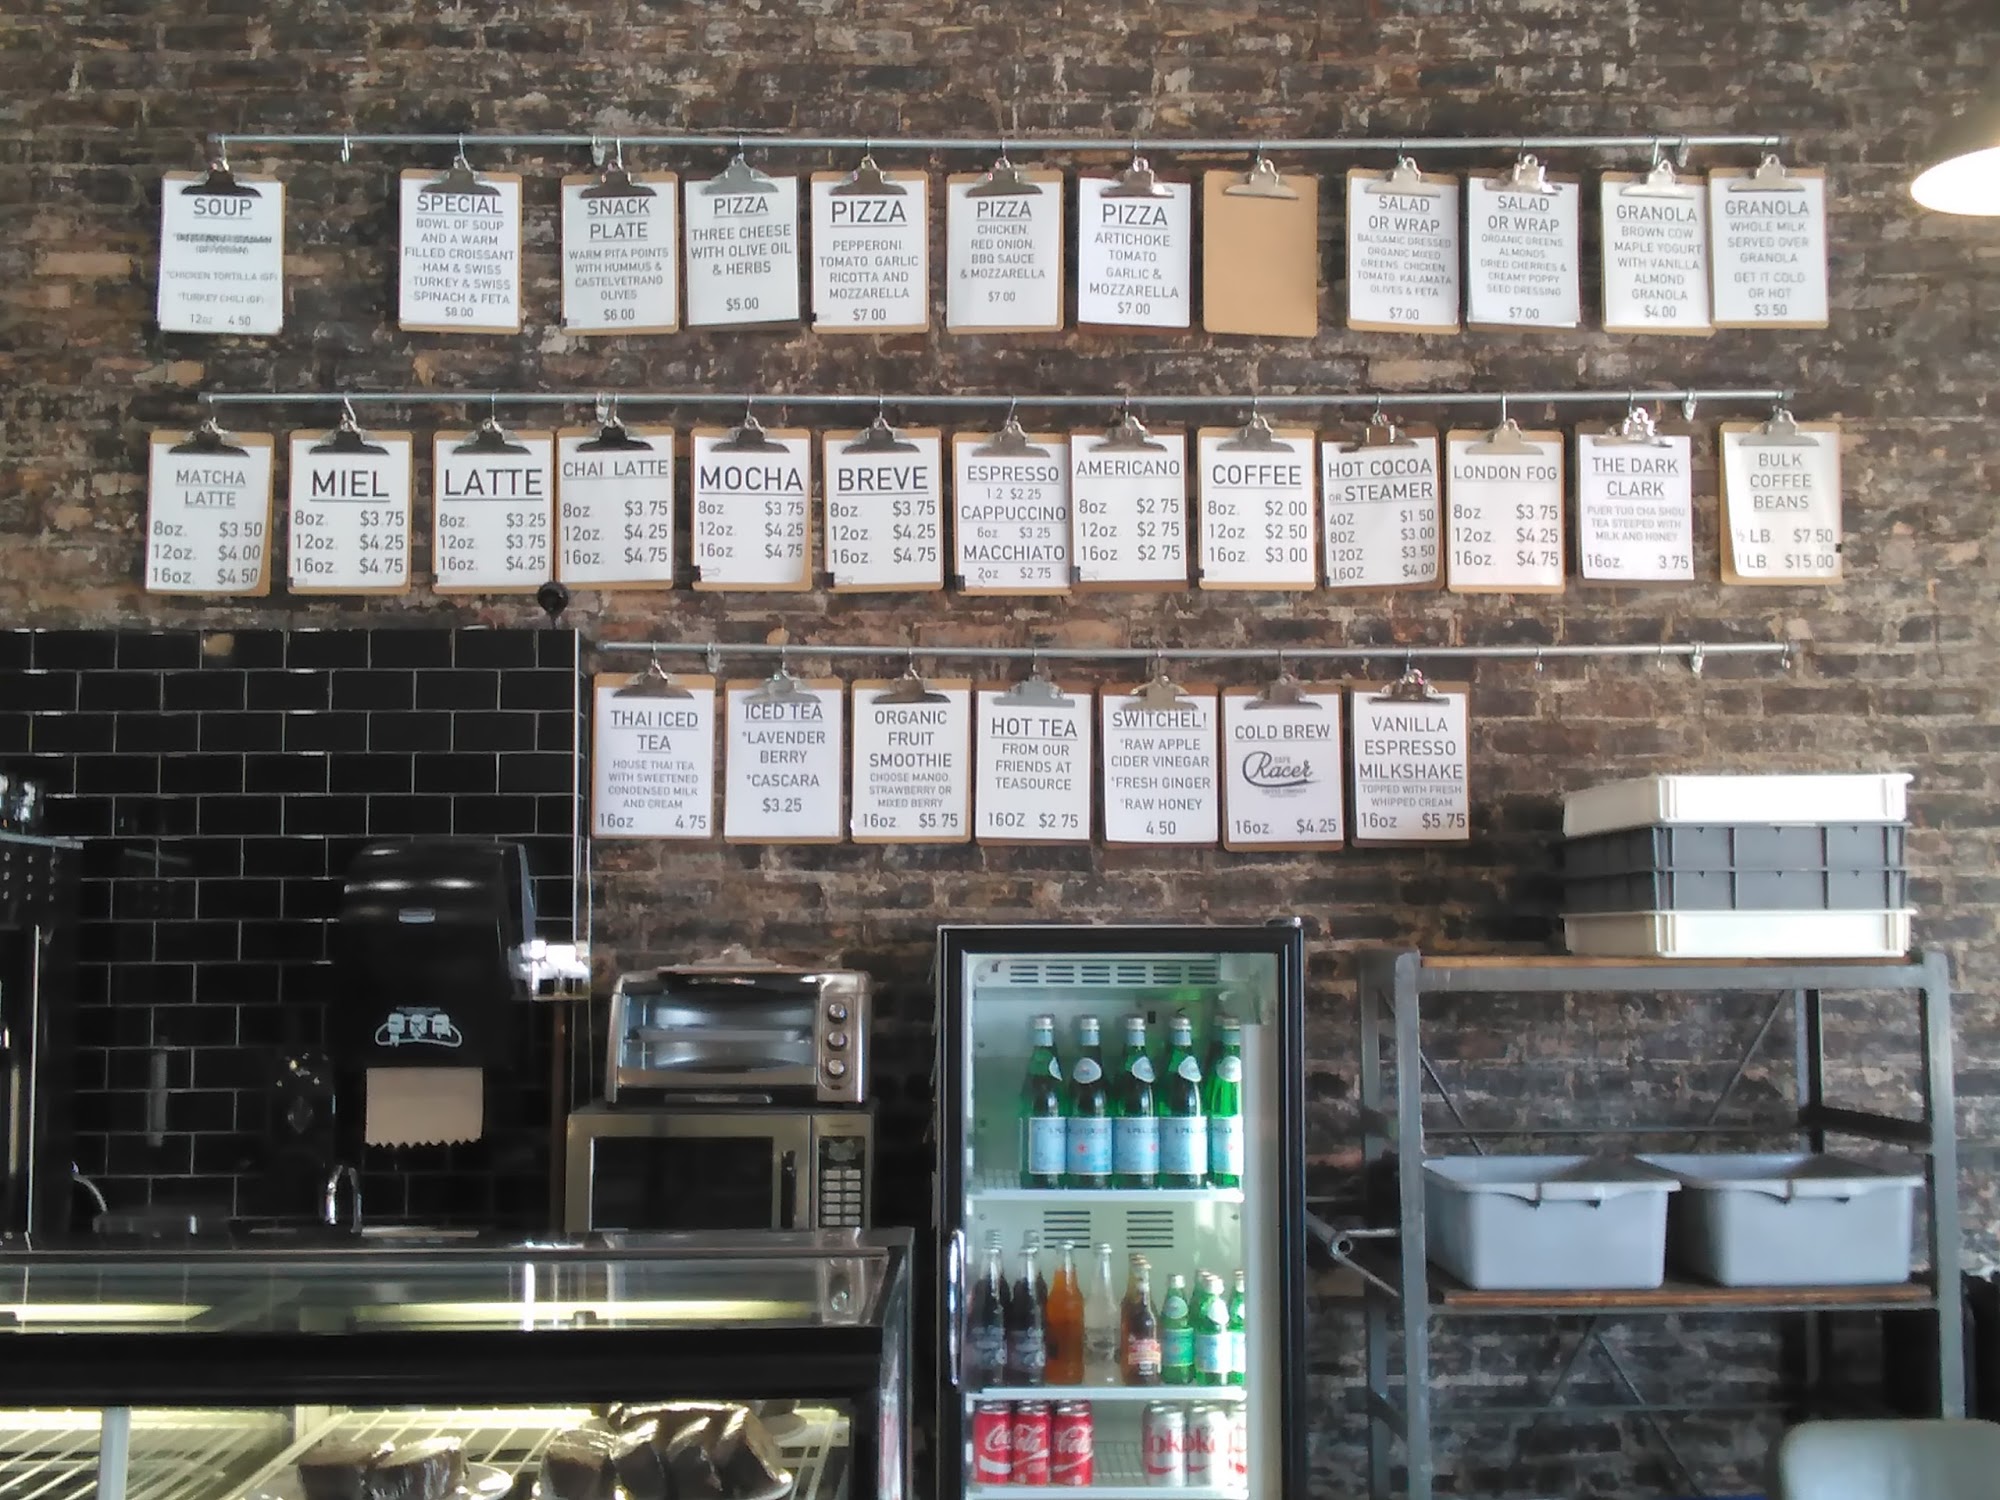 SOUP
*CHICKEN TORTILLA (GF)
*TURKEY CHILI (GF)
12oz 4.50
SPECIAL
BOWL OF SOUP
AND A WARM
FILLED CROISSANT
-HAM & SWISS
-TURKEY & SWISS
-SPINACH & FETA
$8.00
SNACK
PLATE
WARM PITA POINTS
WITH HUMMUS &
CASTELVETRANO
OLIVES
$6.00
PIZZA
THREE CHEESE
WITH OLIVE OIL
& HERBS
$5.00
PIZZA
PEPPERONI,
TOMATO, GARLIC
RICOTTA AND
MOZZARELLA
$7.00
PIZZA
CHICKEN,
RED ONION,
BBQ SAUCE
& MOZZARELLA
$7.00
PIZZA
ARTICHOKE
TOMATO
GARLIC &
MOZZARELLA
$7.00
SALAD
OR WRAP
BALSAMIC DRESSED
ORGANIC MIXED
GREENS, CHICKEN
TOMATO, KALAMATA
OLIVES & FETA
$7.00
SALAD
OR WRAP
ORGANIC GREENS,
ALMONDS,
DRIED CHERRIES &
CREAMY POPPY
SEED DRESSING
$7.00
GRANOLA
BROWN COW
MAPLE YOGURT
WITH VANILLA
ALMOND
GRANOLA
$4.00
GRANOLA
WHOLE MILK
SERVED OVER
GRANOLA
GET IT COLD
OR HOT
$3.50
MATCHA
LATTE
8oz. $3.50
12oz. $4.00
16oz. $4.50
MIEL
8oz. $3.75
12oz. $4.25
16oz. $4.75
LATTE
8oz. $3.25
12oz. $3.75
16oz. $4.25
CHAI LATTE
8oz. $3.75
12oz. $4.25
16oz. $4.75
MOCHA
8oz. $3.75
12oz. $4.25
16oz. $4.75
BREVE
8oz. $3.75
12oz. $4.25
16oz. $4.75
ESPRESSO
1.2 $2.25
CAPPUCCINO
6oz $3.25
MACCHIATO
2oz $2.75
AMERICANO
8oz $2.75
12oz $2.75
16oz $2.75
COFFEE
8oz $2.00
12oz $2.50
16oz $3.00
HOT COCOA
OR STEAMER
4OZ $1.50
8OZ $3.00
12OZ $3.50
16OZ $4.00
LONDON FOG
8oz $3.75
12oz $4.25
16oz $4.75
THE DARK
CLARK
PUER TUO CHA SHOU
TEA STEEPED WITH
MILK AND HONEY
16oz. 3.75
BULK
COFFEE
BEANS
½ LB. $7.50
1 LB. $15.00
THAI ICED
TEA
HOUSE THAI TEA
WITH SWEETENED
CONDENSED MILK
AND CREAM
16oz 4.75
ICED TEA
*LAVENDER
BERRY
*CASCARA
$3.25
ORGANIC
FRUIT
SMOOTHIE
CHOOSE MANGO,
STRAWBERRY OR
MIXED BERRY
16oz. $5.75
HOT TEA
FROM OUR
FRIENDS AT
TEASOURCE
16OZ $2.75
SWITCHEL!
*RAW APPLE
CIDER VINEGAR
*FRESH GINGER
*RAW HONEY
4.50
COLD BREW
CAFE
Racer
16oz $4.25
VANILLA
ESPRESSO
MILKSHAKE
TOPPED WITH FRESH
WHIPPED CREAM
16oz $5.75
Coca-Cola